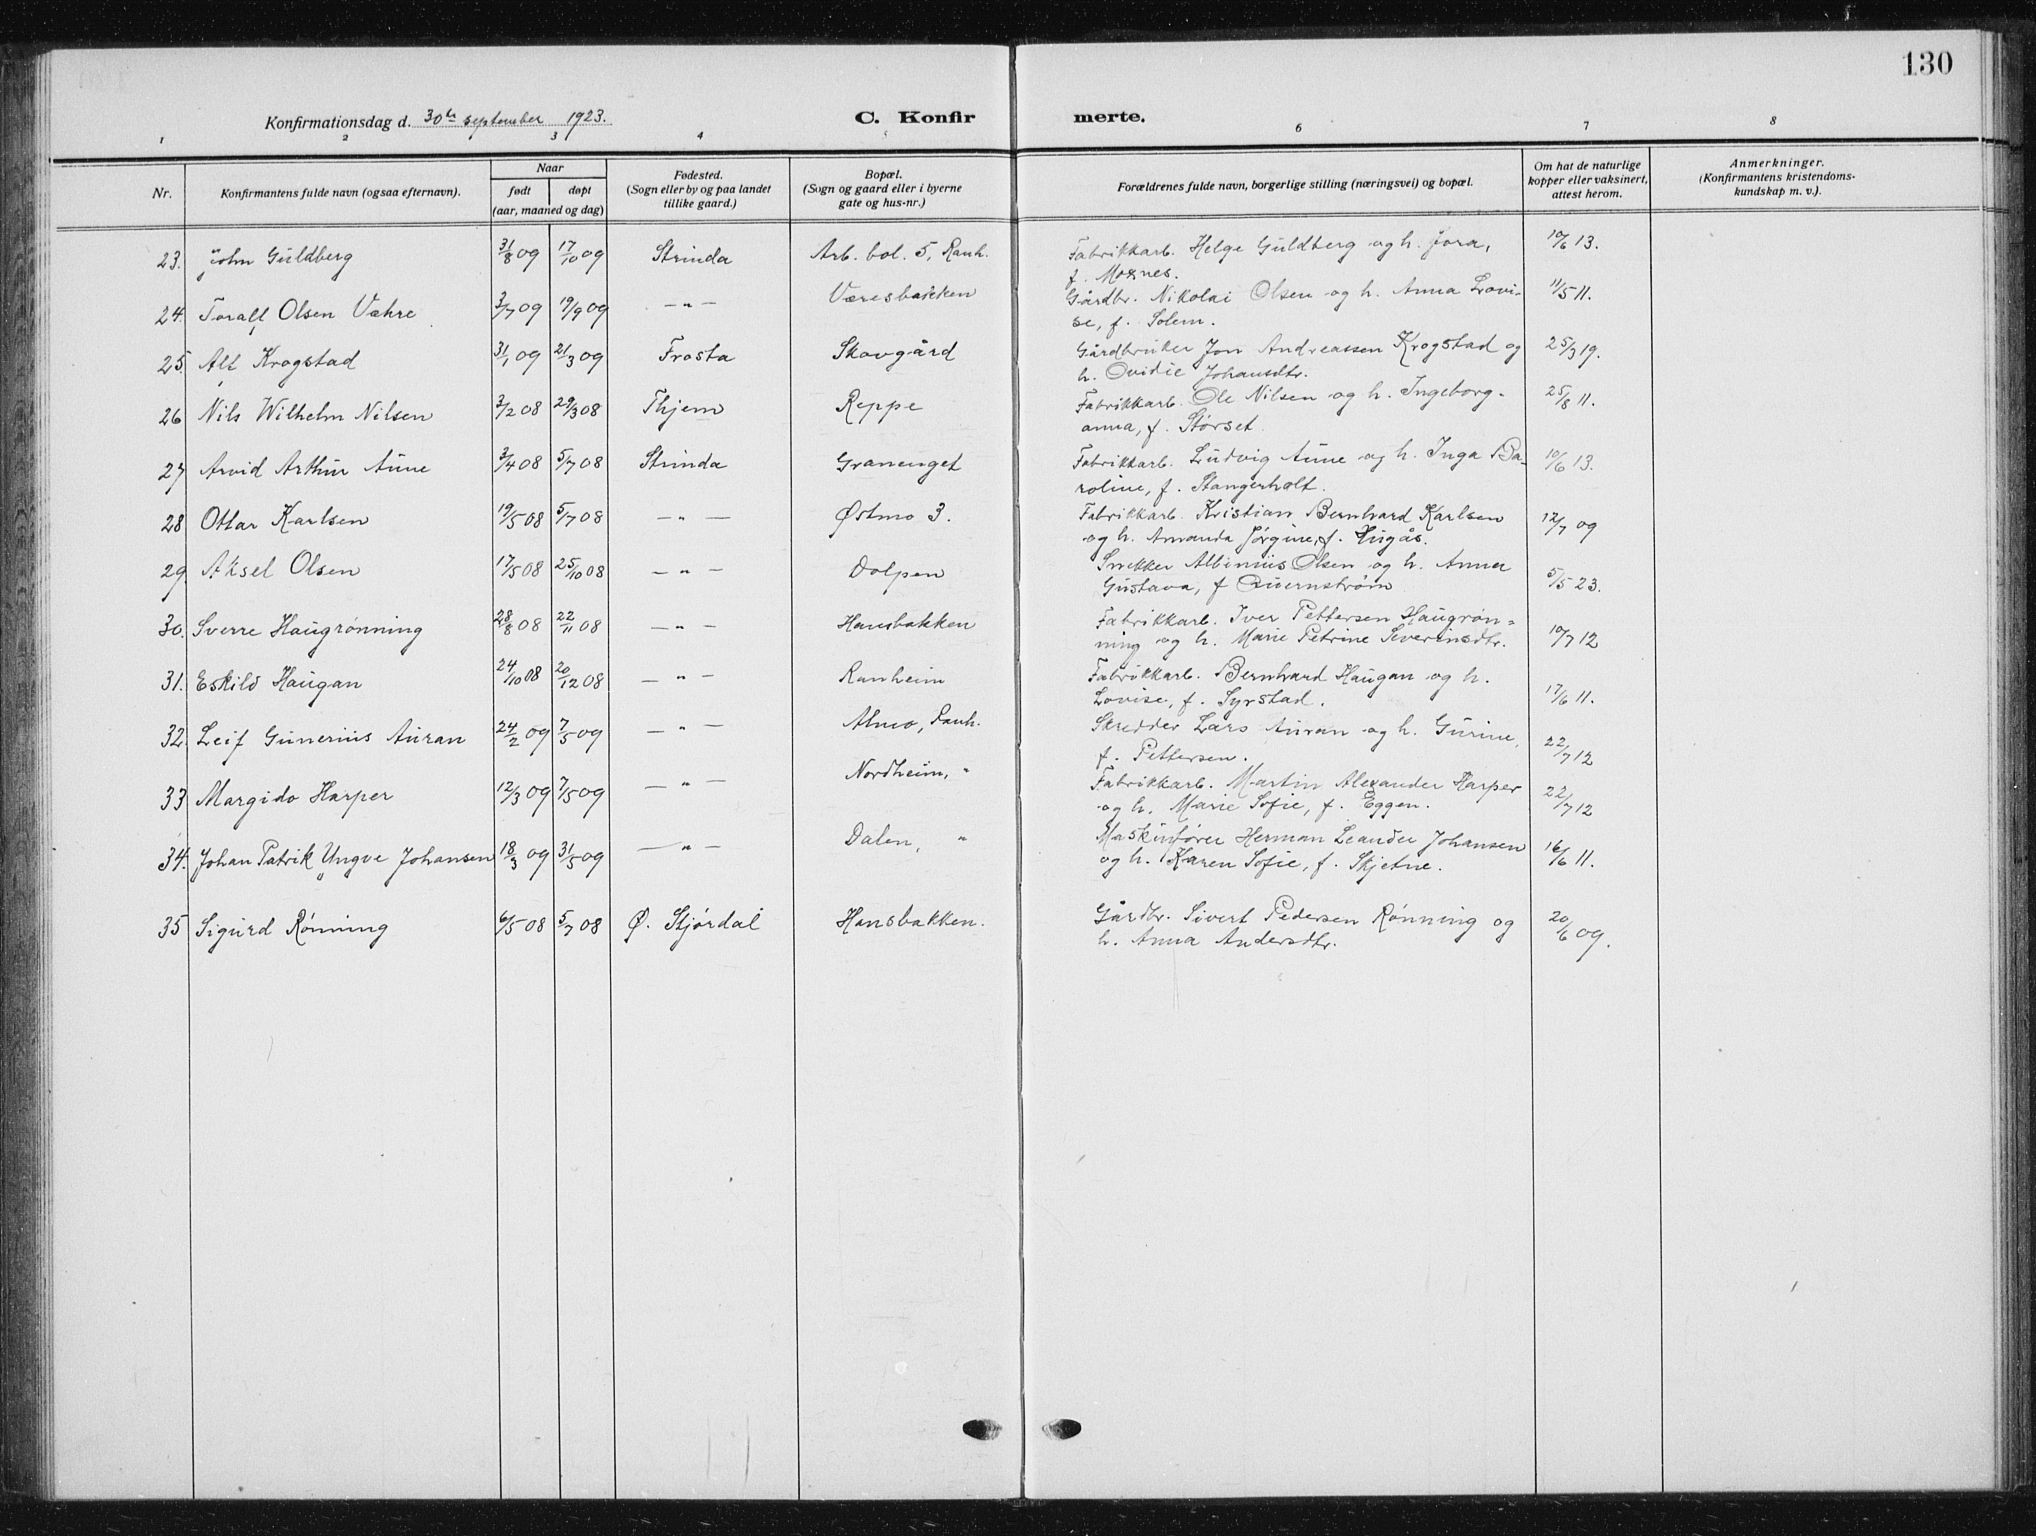 130
Konfirmationsdag d. 30te september 1923.
C. Konfirmerte.
1 2 3 4 5 6 7 8
Nr. Konfirmantens fulde navn (ogsaa efternavn). Naar født døpt (aar, maaned og dag) Fødested. (Sogn eller by og paa landet tillike gaard.) Bopæl. (Sogn og gaard eller i byerne gate og hus-nr.) Forældrenes fulde navn, borgerlige stilling (næringsvei) og bopæl. Om hat de naturlige kopper eller vaksinert, attest herom. Anmerkninger. (Konfirmantens kristendoms-kundskap m. v.).
23. John Guldberg 31/8 09 17/10 09 Strinda Arb. bol. 5, Ranh. Fabrikkarb. Helge Guldberg og h. Jora, 10/6 13.
f. Moxnes.
24. Toralf Olsen Være 3/7 09 19/9 09 — " — Væresbakken Gårdbr. Nikolai Olsen og h. Anna Lovi- 11/5 11.
se, f. Solem.
25. Alf Krogstad 31/1 09 21/3 09 Frosta Skovgård Gårdbruker Jon Andreassen Krogstad og 25/3 19.
h. Ovidie Johansdtr.
26 Nils Wilhelm Nilsen 3/2 08 29/3 08 Thjem Reppe Fabrikkarb. Ole Nilsen og h. Ingeborg- 25/8 11.
anna, f. Størset.
27 Arvid Arthur Aune 3/4 08 5/7 08 Strinda Granenget Fabrikkarb. Ludvig Aune og h. Inga Ba- 10/6 13.
roline, f. Stangerholt.
28 Ottar Karlsen 19/5 08 5/7 08 — " — Østmo 3. Fabrikkarb. Kristian Bernhard Karlsen 12/7 09
og h. Amanda Jørgine, f.
29 Aksel Olsen 17/5 08 25/10 08 — " — Dolpen Snekker Albinius Olsen og h. Anna
Gustava, f Quernstrøm 5/5 23.
30. Sverre Haugrønning 28/8 08 22/11 08 — " — Hansbakken Fabrikkarb. Iver Pettersen Haugrøn-
ning og h. Marie Petrine Severinsdtr. 10/7 12
31. Eskild Haugan 24/10 08 20/12 08 — " — Ranheim Fabrikkarb. Bernhard Haugan og h.
Lovise, f. Syrstad. 17/6 11.
32 Leif Gunerius Auran 24/2 09 7/5 09 — " — Almo, Ranh. Skredder Lars Auran og h. Gurine,
f. Pettersen. 22/7 12
33 Margido Harper 12/3 09 7/5 09 — " — Nordheim, " Fabrikkarb. Martin Alexander Harper
og h. Marie Sofie, f. Eggen. 22/7 12
34. Johan Patrik Yngve Johansen 18/3 09 31/5 09 — " — Dalen, " Maskinfører Herman Leander Johansen
og h. Karen Sofie, f. Skjetne. 16/6 11.
35 Sigurd Rønning 6/5 08 5/7 08 Ø. Stjørdal Hansbakken. Gårdbr. Sivert Pedersen Rønning og
h. Anna Andersdtr. 20/6 09.